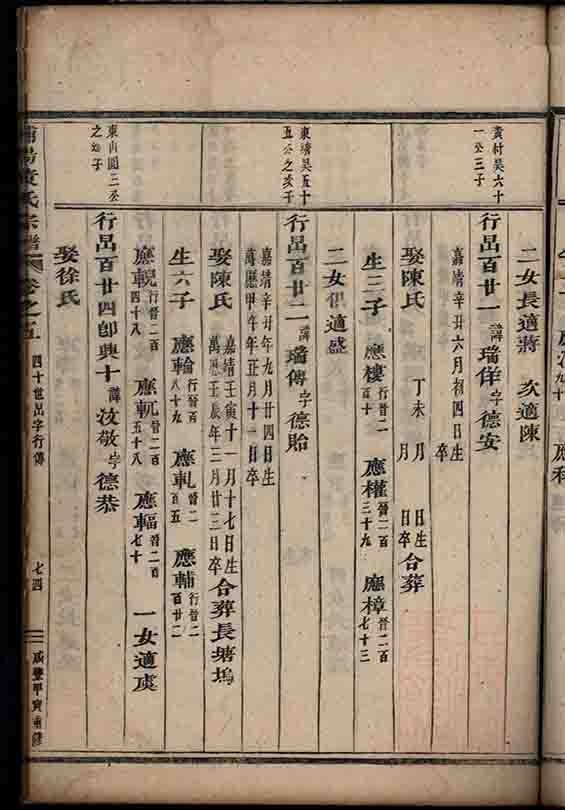 黃村吳六十
一公三子
二女長適蔣 次適陳
行呂百廿一諱璠佯字德安
嘉靖辛丑六月初四日生
卒
娶陳氏 丁未 月 日生
月 日卒 合葬
生三子 應樓行晉二百十 應權晉一百三十九 應樟行晉二百七十三
二女俱適盛
東靖吳五十
五公之次子
行呂百廿二諱璠傅字德貽
嘉靖辛丑年九月廿四日生
萬歷甲午年正月十一日卒
娶陳氏 嘉靖壬寅十一月十七日生
萬歷壬辰年三月廿三日卒 合葬長塘塢
生六子 應輪行晉百八十九 應軋晉二百五 應輔行晉二百廿二
應輗行晉二百四十八 應軏晉二百五十八 應輻晉二百七十 一女適虞
東山圓二公
之幼子
行呂百廿四卽興十諱汝敬字德恭
娶徐氏
黃氏宗譜 卷之五 四十世呂字行傳 七四 咸豐甲寅重修